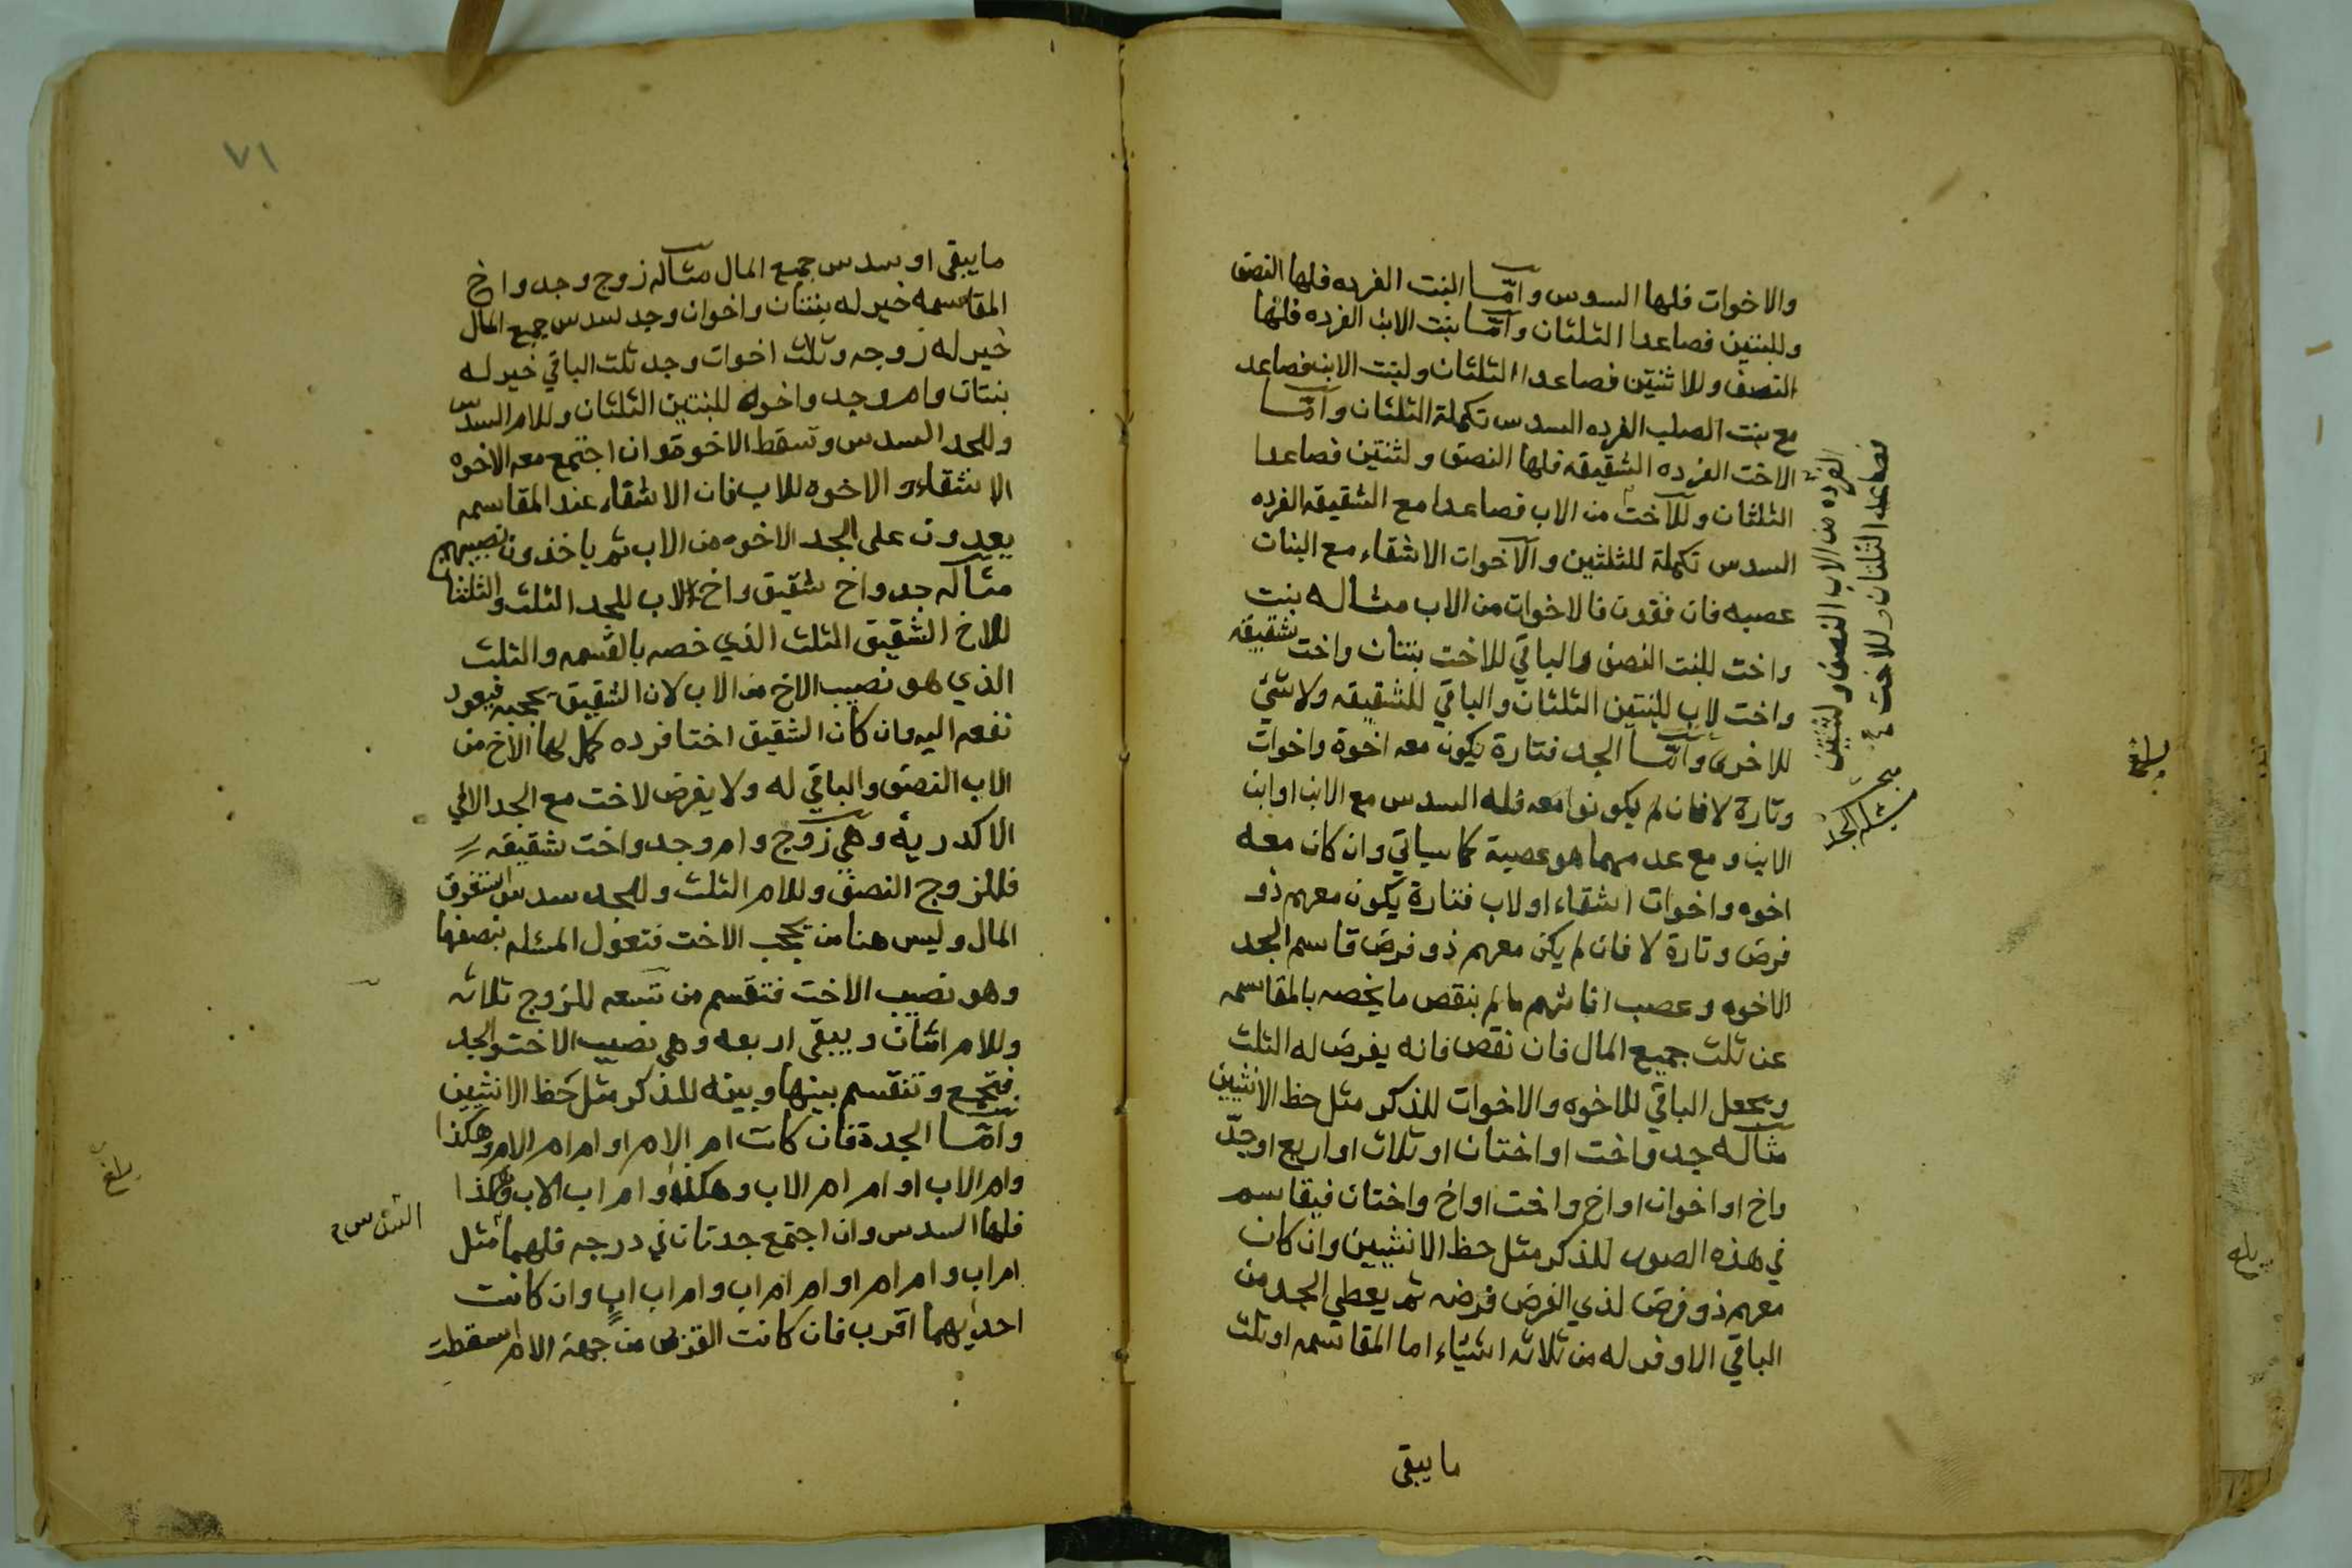 والاخوات فلها السدس وامّا البنت الفرده فلها النصف
وللبنتين فصاعدا الثلثان وامّا بنت الابن الفرده فلها
النصف وللاثنتين فصاعدا الثلثان ولبنت الابن فصاعد
مع بنت الصلب الفرده السدس تكملة الثلثان وامّا
الاخت الفرده الشقيقه فلها النصف ولثنتين فصاعدا
الثلثان وللآخت من الاب فصاعدا مع الشقيقه الفرده
السدس تكملة للثلثين والآخوات الاشقاء مع البنات
عصبه فان فقدن فالاخوات من الاب مثاله بنت
واخت للبنت النصف والباقي للاخت بنتان واخت شقيقه
واخت لاب للبنتين الثلثان والباقي للشقيقه ولا شئ
للاخرى وامّا الجد فتارة يكون معه اخوة واخوات
وتارة لا فان لم يكونوا معه فله السدس مع الابن او ابن
الابن ومع عدمهما هو عصبة كما سياتي وان كان معه
اخوه واخوات اشقاء او لاب فتارة يكون معهم ذو
فرض وتارة لا فان لم يكن معهم ذو فرض قاسم الجد
الاخوه وعصب اناثهم ما لم ينقص ما يخصه بالمقاسمه
عن ثلث جميع المال فان نقص فانه يفرض له الثلث
ويجعل الباقي للاخوه والاخوات للذكر مثل حظ الانثيين
مثاله جد واخت او اختان او ثلاث او اربع او جدّ
واخ او اخوان او اخ واخت او اخ واختان فيقاسم
في هذه الصور للذكر مثل حظ الانثيين وان كان
معهم ذو فرض لذي الفرض فرضه ثم يعطي الجد من
الباقي الاوفر له من ثلاثه اشياء اما المقاسمه او ثلث
ما يبقى
الفرده من الاب النصف ولثنتين
فصاعدا الثلثان وللاخت
مسئلة الجد
بلغ
٧١
ما يبقى او سدس جميع المال مثاله زوج وجد واخ
المقاسمه خير له بنتان واخوان وجد سدس جميع المال
خير له زوجه وثلث اخوات وجد ثلث الباقي خير له
بنتان وام وجد واخوه للبنتين الثلثان وللام السدس
وللجد السدس وتسقط الاخوة وان اجتمع معه الاخوه
الاشقاء والاخوه للاب فان الاشقاء عند المقاسمه
يعدون على الجد الاخوه من الاب ثم ياخذون نصيبهم
مثاله جد واخ شقيق واخ لاب للجد الثلث والثلثان
للاخ الشقيق الثلث الذي خصه بالقسمه والثلث
الذي هو نصيب الاخ من الاب لان الشقيق يحجبه فيعود
نفعه اليه وان كان الشقيق اختا فرده كمل لها الآخ من
الاب النصف والباقي له ولا يفرض لاخت مع الجد الا في
الاكدرية وهي زوج وام وجد واخت شقيقه
فللزوج النصف وللام الثلث وللجد سدس استغرق
المال وليس هنا من يحجب الاخت فتعول المسئله بنصفها
وهو نصيب الاخت فتقسم من تسعه للزوج ثلاثه
وللام اثنان ويبقى اربعه وهي نصيب الاخت والجد
فتجمع وتنقسم بينها وبينه للذكر مثل حظ الانثيين
وامّا الجدة فان كانت ام الام او ام ام الام وهكذا
وام الاب او ام ام الاب وهكذا وام اب الاب وهكذا
فلها السدس وان اجتمع جدتان في درجه فلهما مثل
ام اب وام ام او ام ام اب وام اب اب وان كانت
احديهما اقرب فان كانت القربى من جهة الام اسقطت
السدس
بلغ